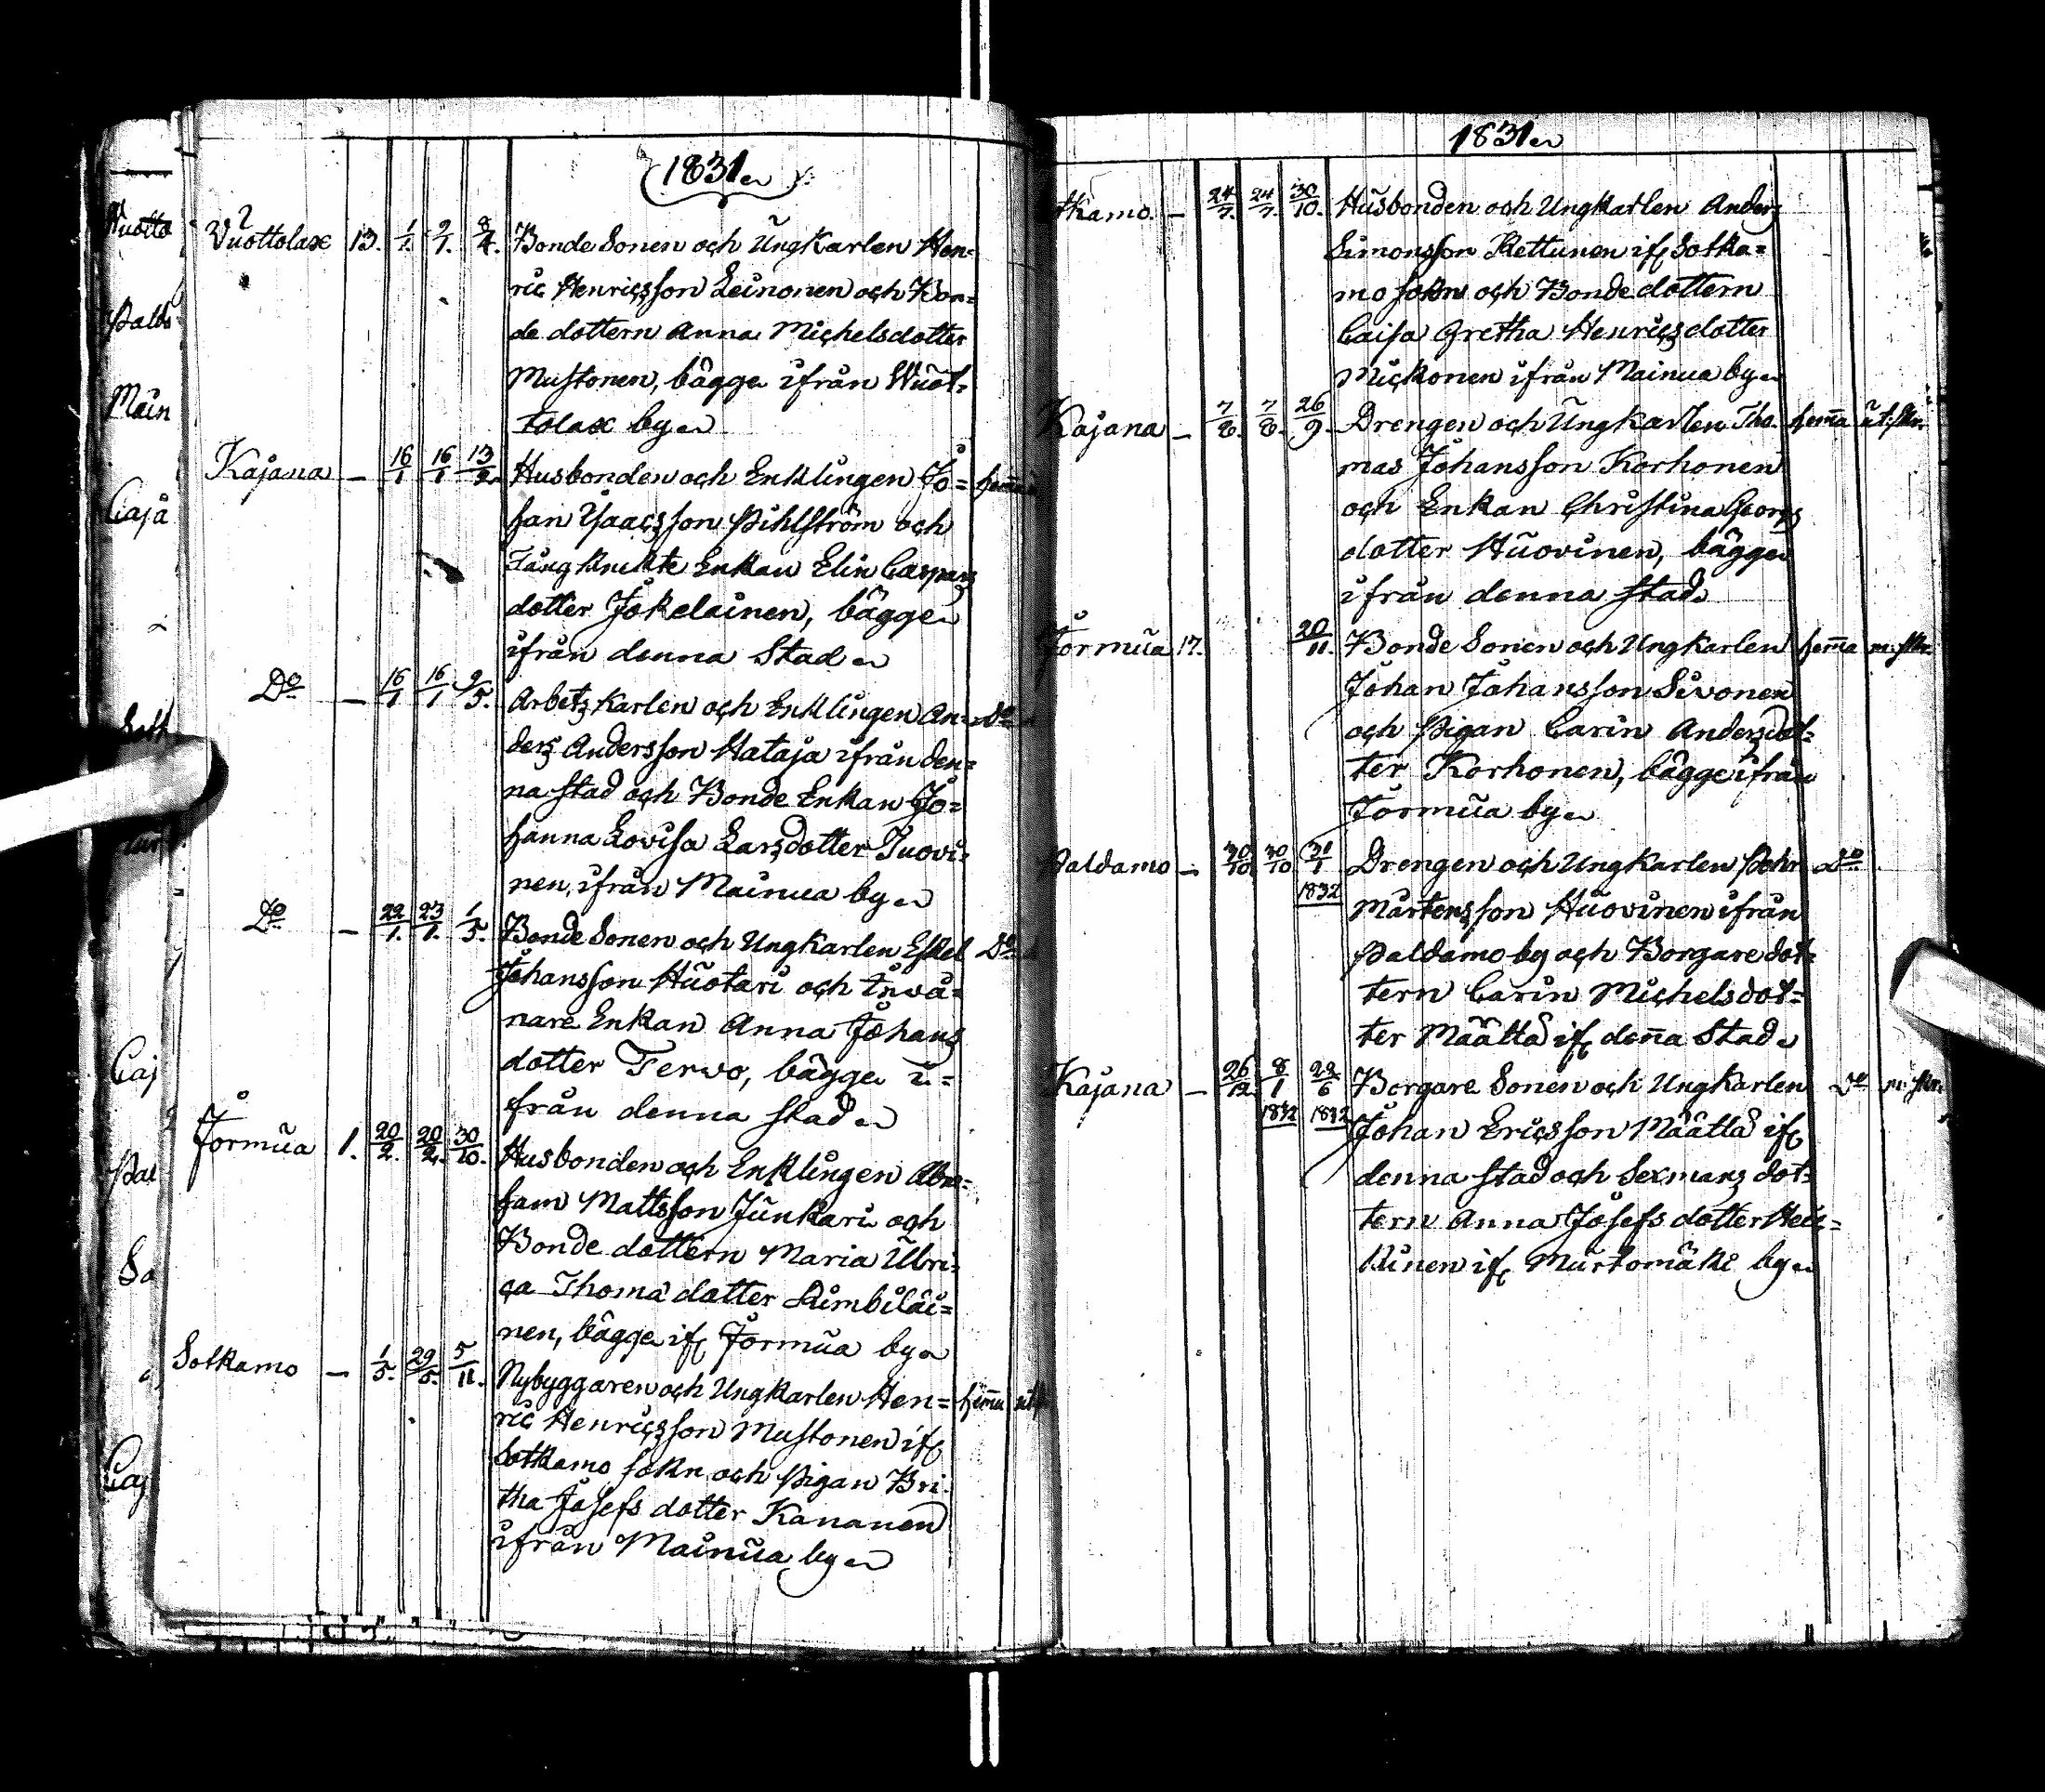 1831
Vuottolax 13. 1/1. 2/1. 3/4. Bonde Sonen och Ungkarlen Hen-
ric Henricsson Leinonen och Bon-
de dottern Anna Michelsdotter
Mustonen, bägge ifrån Wuot-
tolax by
Kajana — 16/1 16/1 13/2 Husbonden och Enklingen Jo=
han Isaacsson Pihlström och
Enkan Elin Caspars
dotter Jokelainen, bägge
ifrån denna Stad
Do — 16/1 16/1 9/5. Arbets Karlen och Enklingen An- Do
ders Andersson Hataja ifrån den=
na stad och Bonde Enkan Jo=
hanna Lovisa Larsdotter Juovi-
nen, ifrån Mainua by
Do — 22/1. 23/1. 1/5. Bonde Sonen och Ungkarlen Eskel Do
Johansson Huotari och Inwå-
nare Enkan Anna Johans
dotter Terwo, bägge i=
från denna stad
Jormua 1. 20/2. 20/2. 30/10. Husbonden och Enklingen Abra-
ham Mattsson Junkari och
Bonde dottern Maria Ulri-
ca Thomä dotter Limbiläi=
nen, bägge if Jormua by
Sotkamo — 1/5. 29/5. 5/11. Nybyggaren och Ungkarlen Hen= hemma
ric Henricsson Mustonen if
Sotkamo sokn och Pigan Bri-
tha Josefs dotter Kananen
ifrån Mainua by
1831
tkamo. — 24/7. 24/7. 30/10. Husbonden och Ungkarlen Anders
Simonsson Kettunen if Sotka=
mo sokn och Bonde dottern
Caisa Gretha Henricsdotter
Mickonen ifrån Mainua by
Kajana — 7/8. 7/8. 26/9. Drengen och Ungkarlen Tho- hema
mas Johansson Korhonen
och Enkan Christina Georgs
dotter Huovinen, bägge
ifrån denna stad
Jormua 17. 20/11. Bonde Sonen och Ungkarlen hema
Johan Johansson Sivonen
och Pigan Carin Andersdot-
ter Korhonen, bägge ifrån
Jormua by
Paldamo — 30/10 30/10 31/1 1832 Drengen och Ungkarlen Pehr Do
Mårtensson Huovinen ifrån
Paldamo by och Borgare dot-
tern Carin Michelsdot=
ter Määttä if denna Stad
Kajana — 26/12. 8/1 1832 22/6 1832 Borgare Sonen och Ungkarlen Do
Johan Ericsson Määttä if
denna stad och Sexmans dot-
tern Anna Josefs dotter Heic=
kinen if Murtomäki by